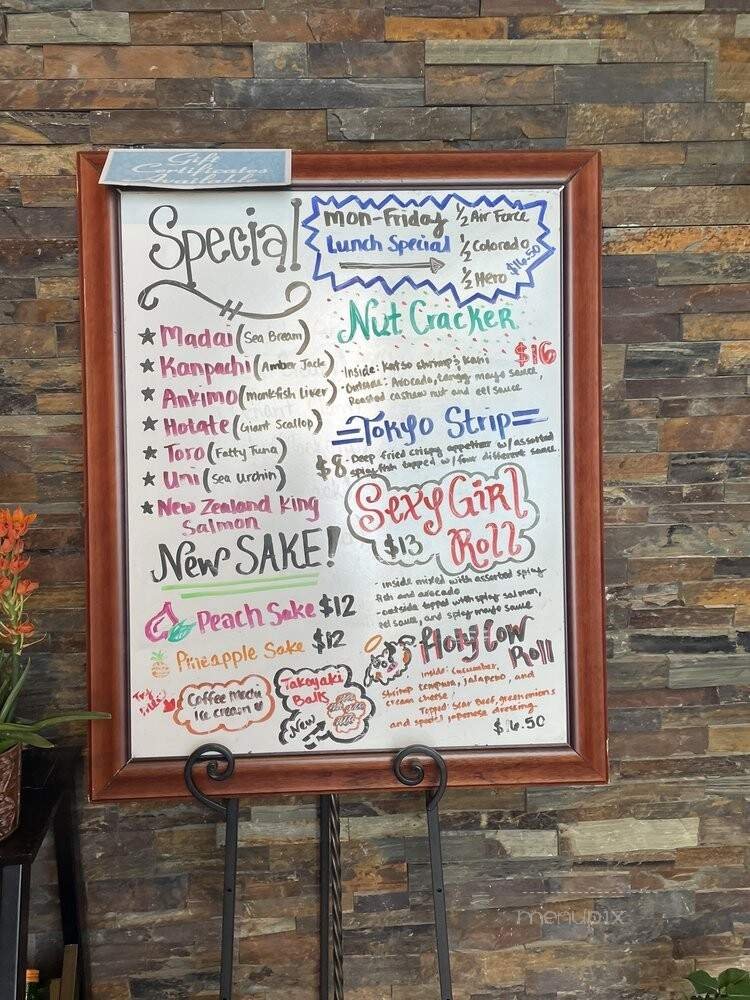 Gift
Certificates
Available
Special
Mon-Friday
Lunch Special
1/2 Air Force
1/2 Colorado
1/2 Hero $16.50
★ Madai (Sea Bream)
★ Kanpachi (Amber Jack)
★ Ankimo (monkfish Liver)
★ Hotate (Giant Scallop)
★ Toro (Fatty Tuna)
★ Uni (Sea Urchin)
★ New Zealand King
Salmon
New SAKE!
Peach Sake $12
Pineapple Sake $12
Coffee Mochi
Ice cream
Takoyaki
Balls
New
Nut Cracker
$16
·Inside: Katso shrimp & Kani
·Outside: Avocado, tangy mayo sauce,
Roasted cashew nut and eel sauce
=Tokyo Strip=
$8 - Deep fried crispy appetizer w/ assorted
spicy fish topped w/ four different sauce.
Sexy Girl
$13 Roll
- inside mixed with assorted spicy
fish and avocado
- outside topped with spicy salmon,
eel sauce, and spicy mayo sauce
Holy Cow
Roll
Inside: Cucumber,
shrimp tempura, jalapeno, and
cream cheese
Topped: Sear Beef, green onions
and special japanese dressing
$16.50
menupix